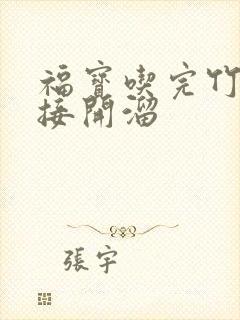 福寶喫完竹
接開溜
張宇